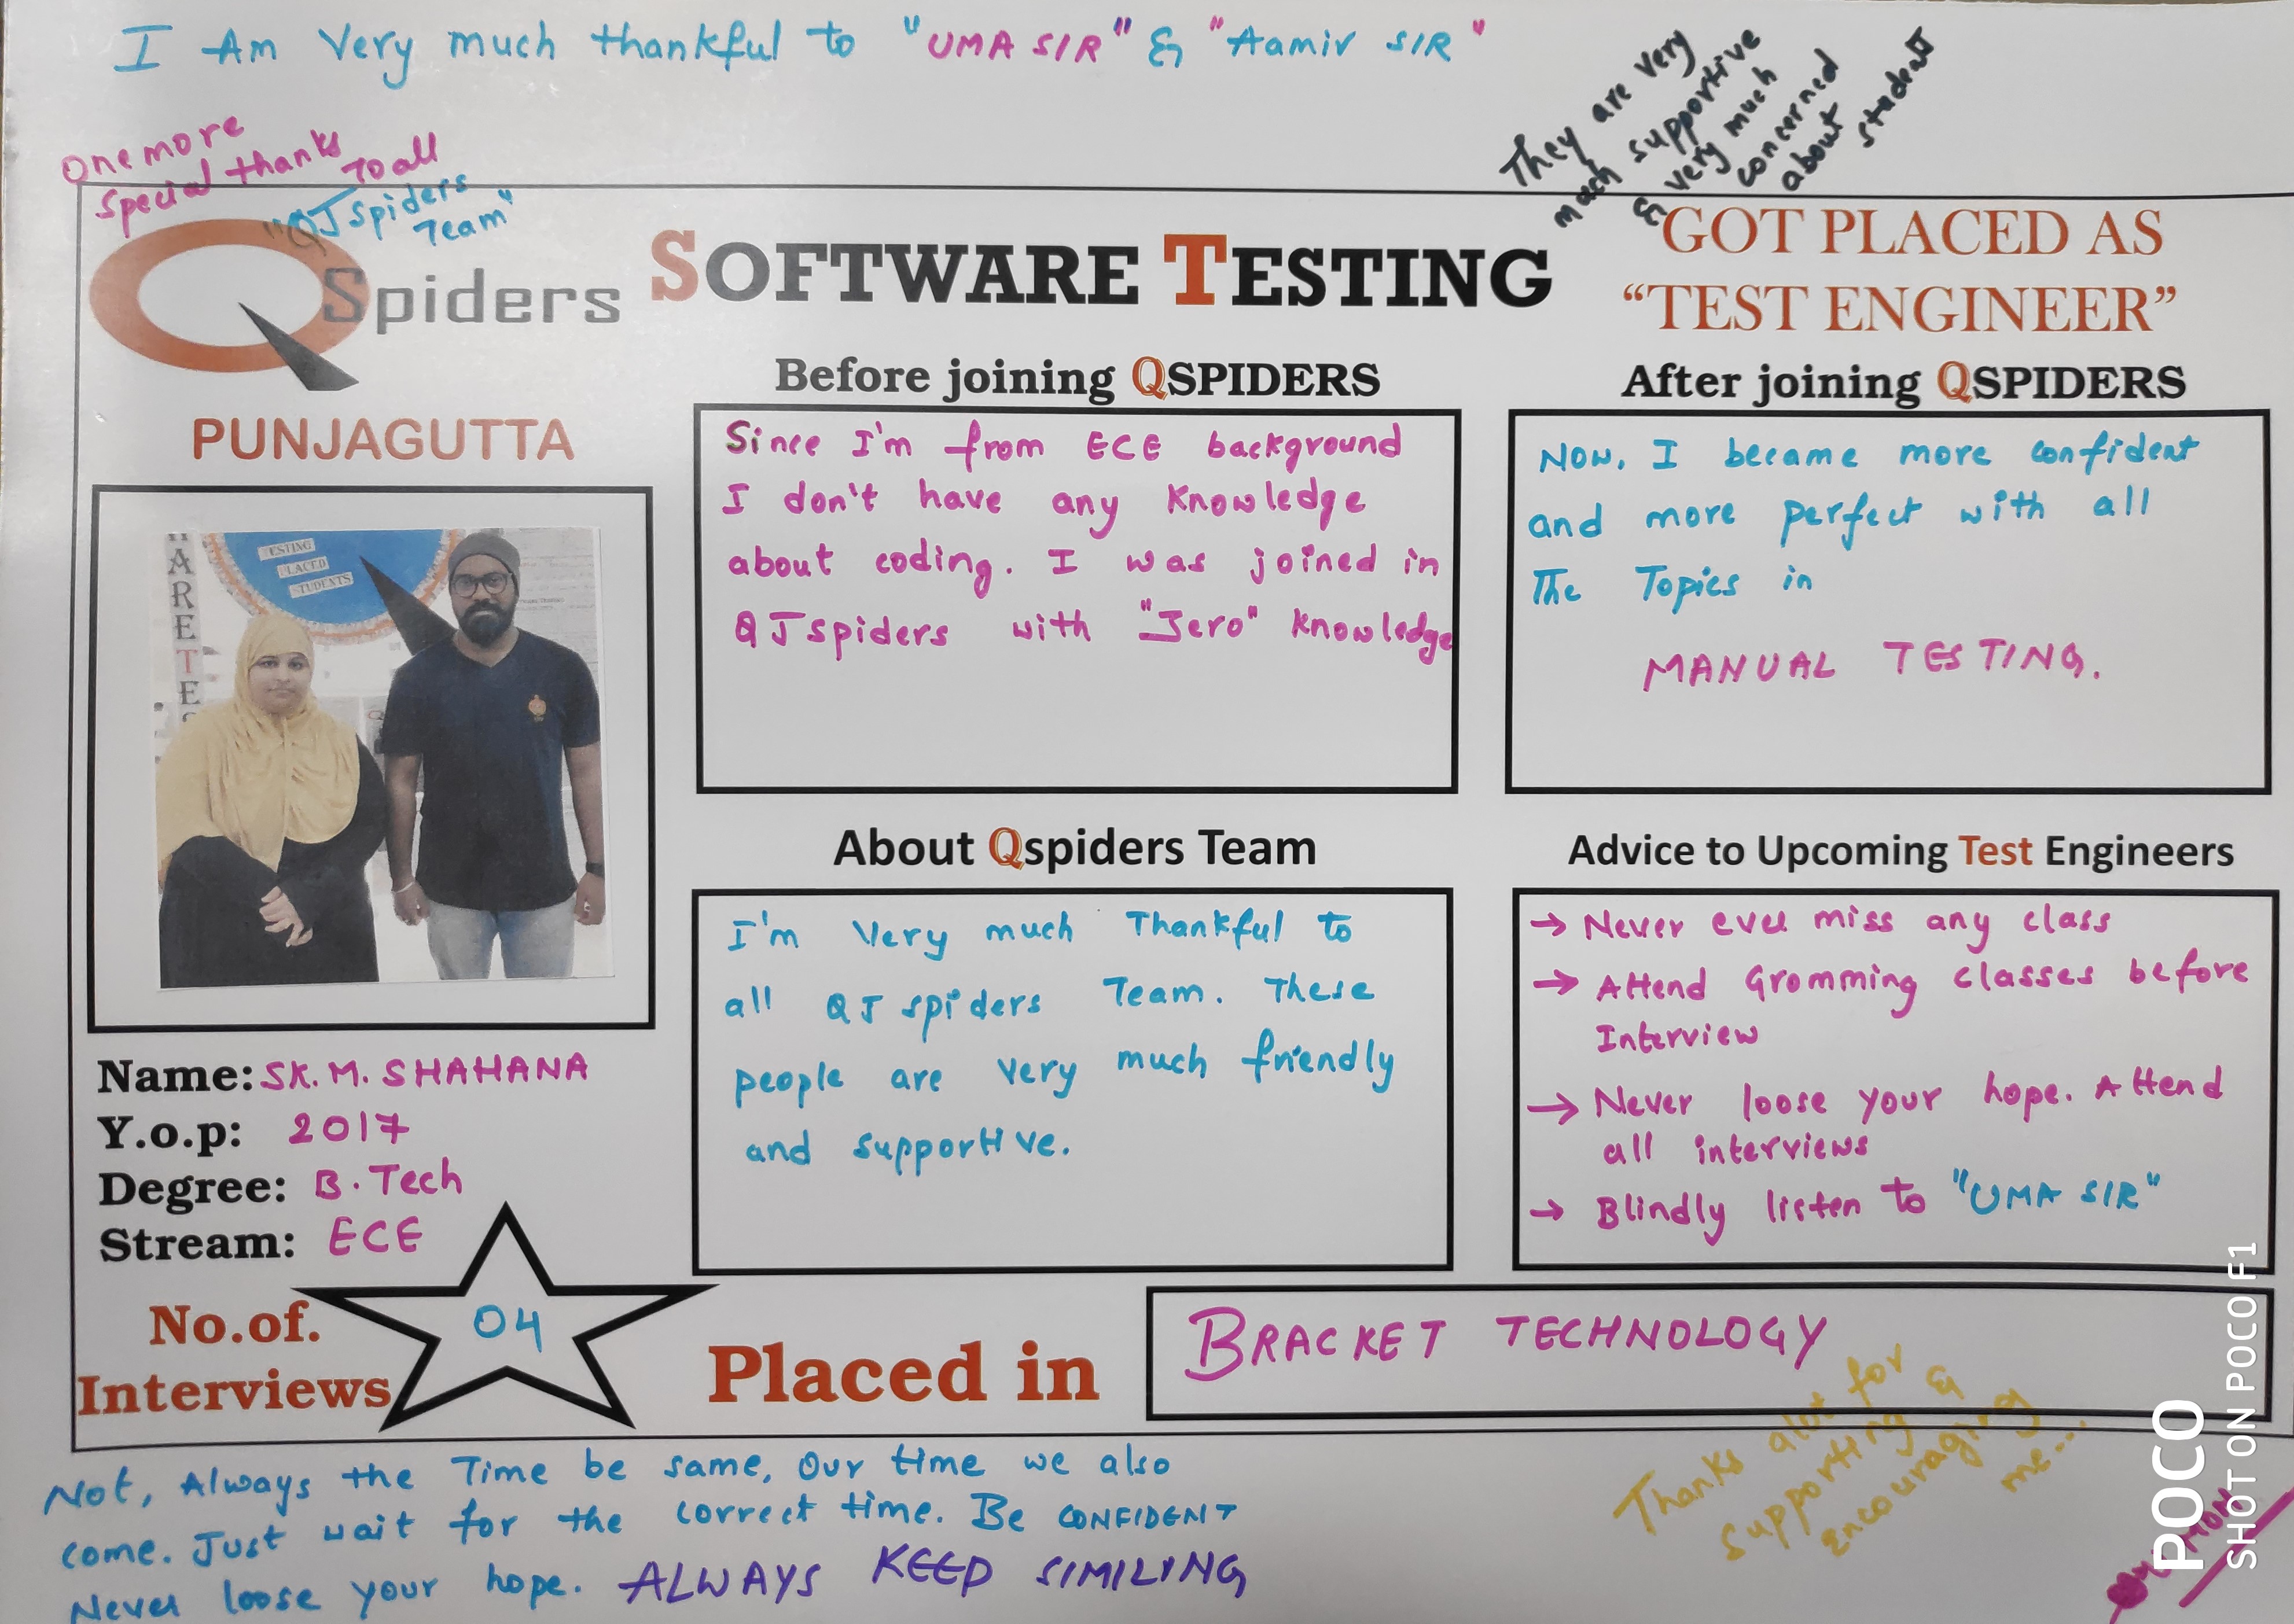 I Am Very much thankful to "UMA SIR" & "Aamir SIR"
They are very
much supportive
& very much
concerned
about student
One more
special thanks
To all
"QJspiders
Team"
QSpiders
SOFTWARE TESTING
GOT PLACED AS
“TEST ENGINEER”
PUNJAGUTTA
Before joining QSPIDERS
Since I'm from ECE background
I don't have any knowledge
about coding. I was joined in
QJspiders with "Jero" knowledge
After joining QSPIDERS
Now, I became more confident
and more perfect with all
The Topics in
MANUAL TESTING.
ARETES
TESTING
PLACED
STUDENTS
About Qspiders Team
I'm Very much Thankful to
all QJspiders Team. These
people are very much friendly
and supportive.
Advice to Upcoming Test Engineers
→ Never ever miss any class
→ Attend Gromming classes before
Interview
→ Never loose your hope. Attend
all interviews
→ Blindly listen to "UMA SIR"
Name: SK. M. SHAHANA
Y.o.p: 2017
Degree: B.Tech
Stream: ECE
No.of.
Interviews
04
Placed in
BRACKET TECHNOLOGY
Thanks alot for
supporting &
encouraging
me...
Not, Always the Time be same, our time we also
come. Just wait for the correct time. Be CONFIDENT
Never loose your hope. ALWAYS KEEP SIMILING
POCO
SHOT ON POCO F1